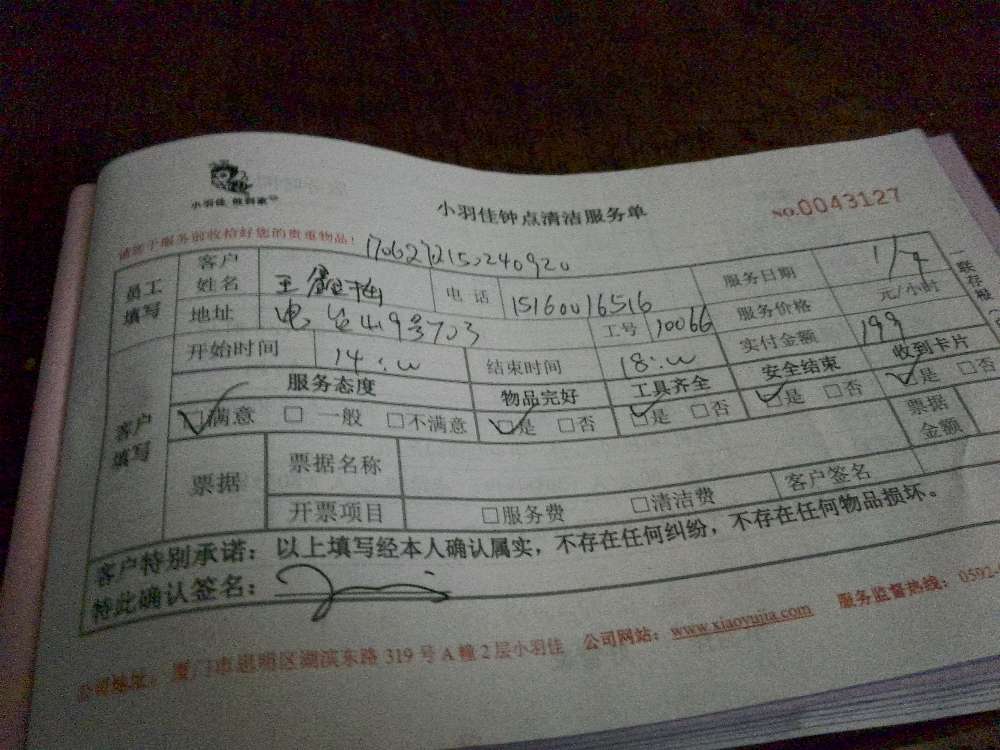 小羽佳
小羽佳钟点清洁服务单
NO.0043127
请您于服务前收拾好您的贵重物品!
员工填写
客户姓名 王
电话 15160016516
服务日期 1/7
地址 电台山9号703
工号 10066
服务价格 元/小时
一联存根
客户填写
开始时间 14:00
结束时间 18:00
实付金额 199
服务态度 物品完好 工具齐全 安全结束 收到卡片
☑满意 □一般 □不满意 ☑是 □否 ☑是 □否 ☑是 □否 ☑是 □否
票据 票据名称 票据金额
开票项目 □服务费 □清洁费 客户签名
客户特别承诺:以上填写经本人确认属实,不存在任何纠纷,不存在任何物品损坏。
特此确认签名:
公司地址:厦门市思明区湖滨东路 319 号 A 幢 2 层小羽佳 公司网站:www.xiaoyujia.com 服务监督热线:0592-